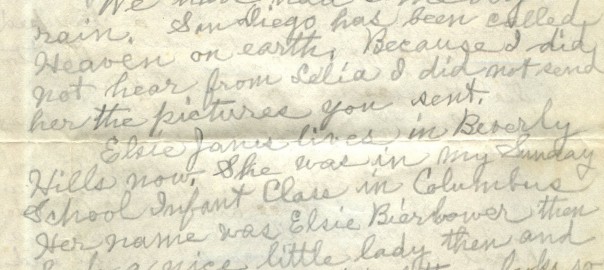 We have had
rain. San Diego has been called
Heaven on earth. Because I did
not hear from Lelia I did not send
her the pictures you sent.
Elsie Janis lives in Beverly
Hills now. She was in my Sunday
School Infant Class in Columbus
Her name was Elsie Bierbower then
nice little lady then and